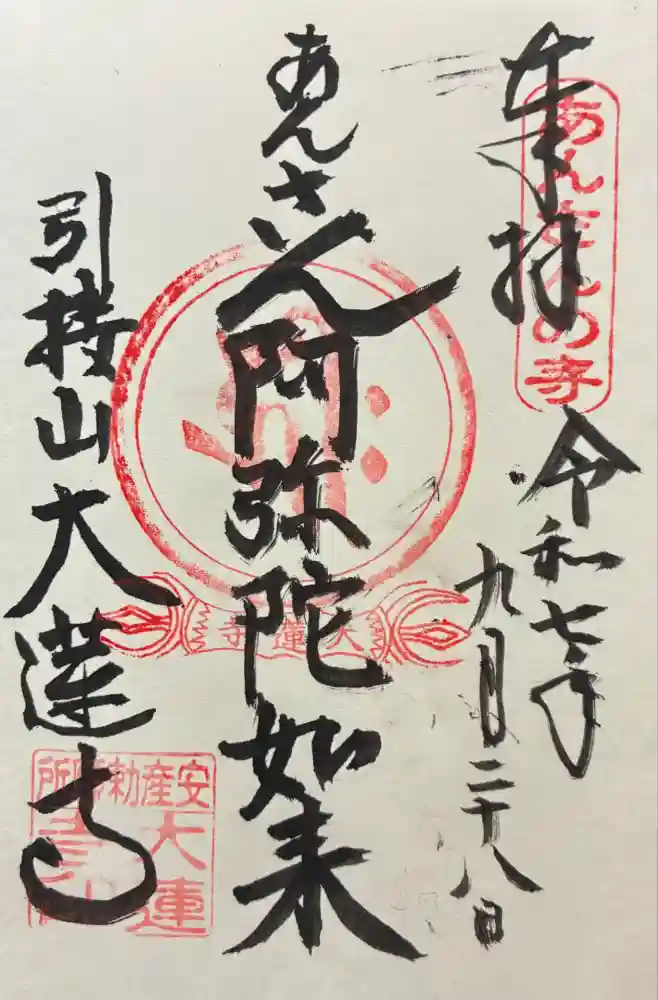 奉拝
あんざんの寺
令和七年
九月二十八日
あんざん
阿弥陀如来
大蓮寺
引接山大蓮寺
安産勅願所
大連